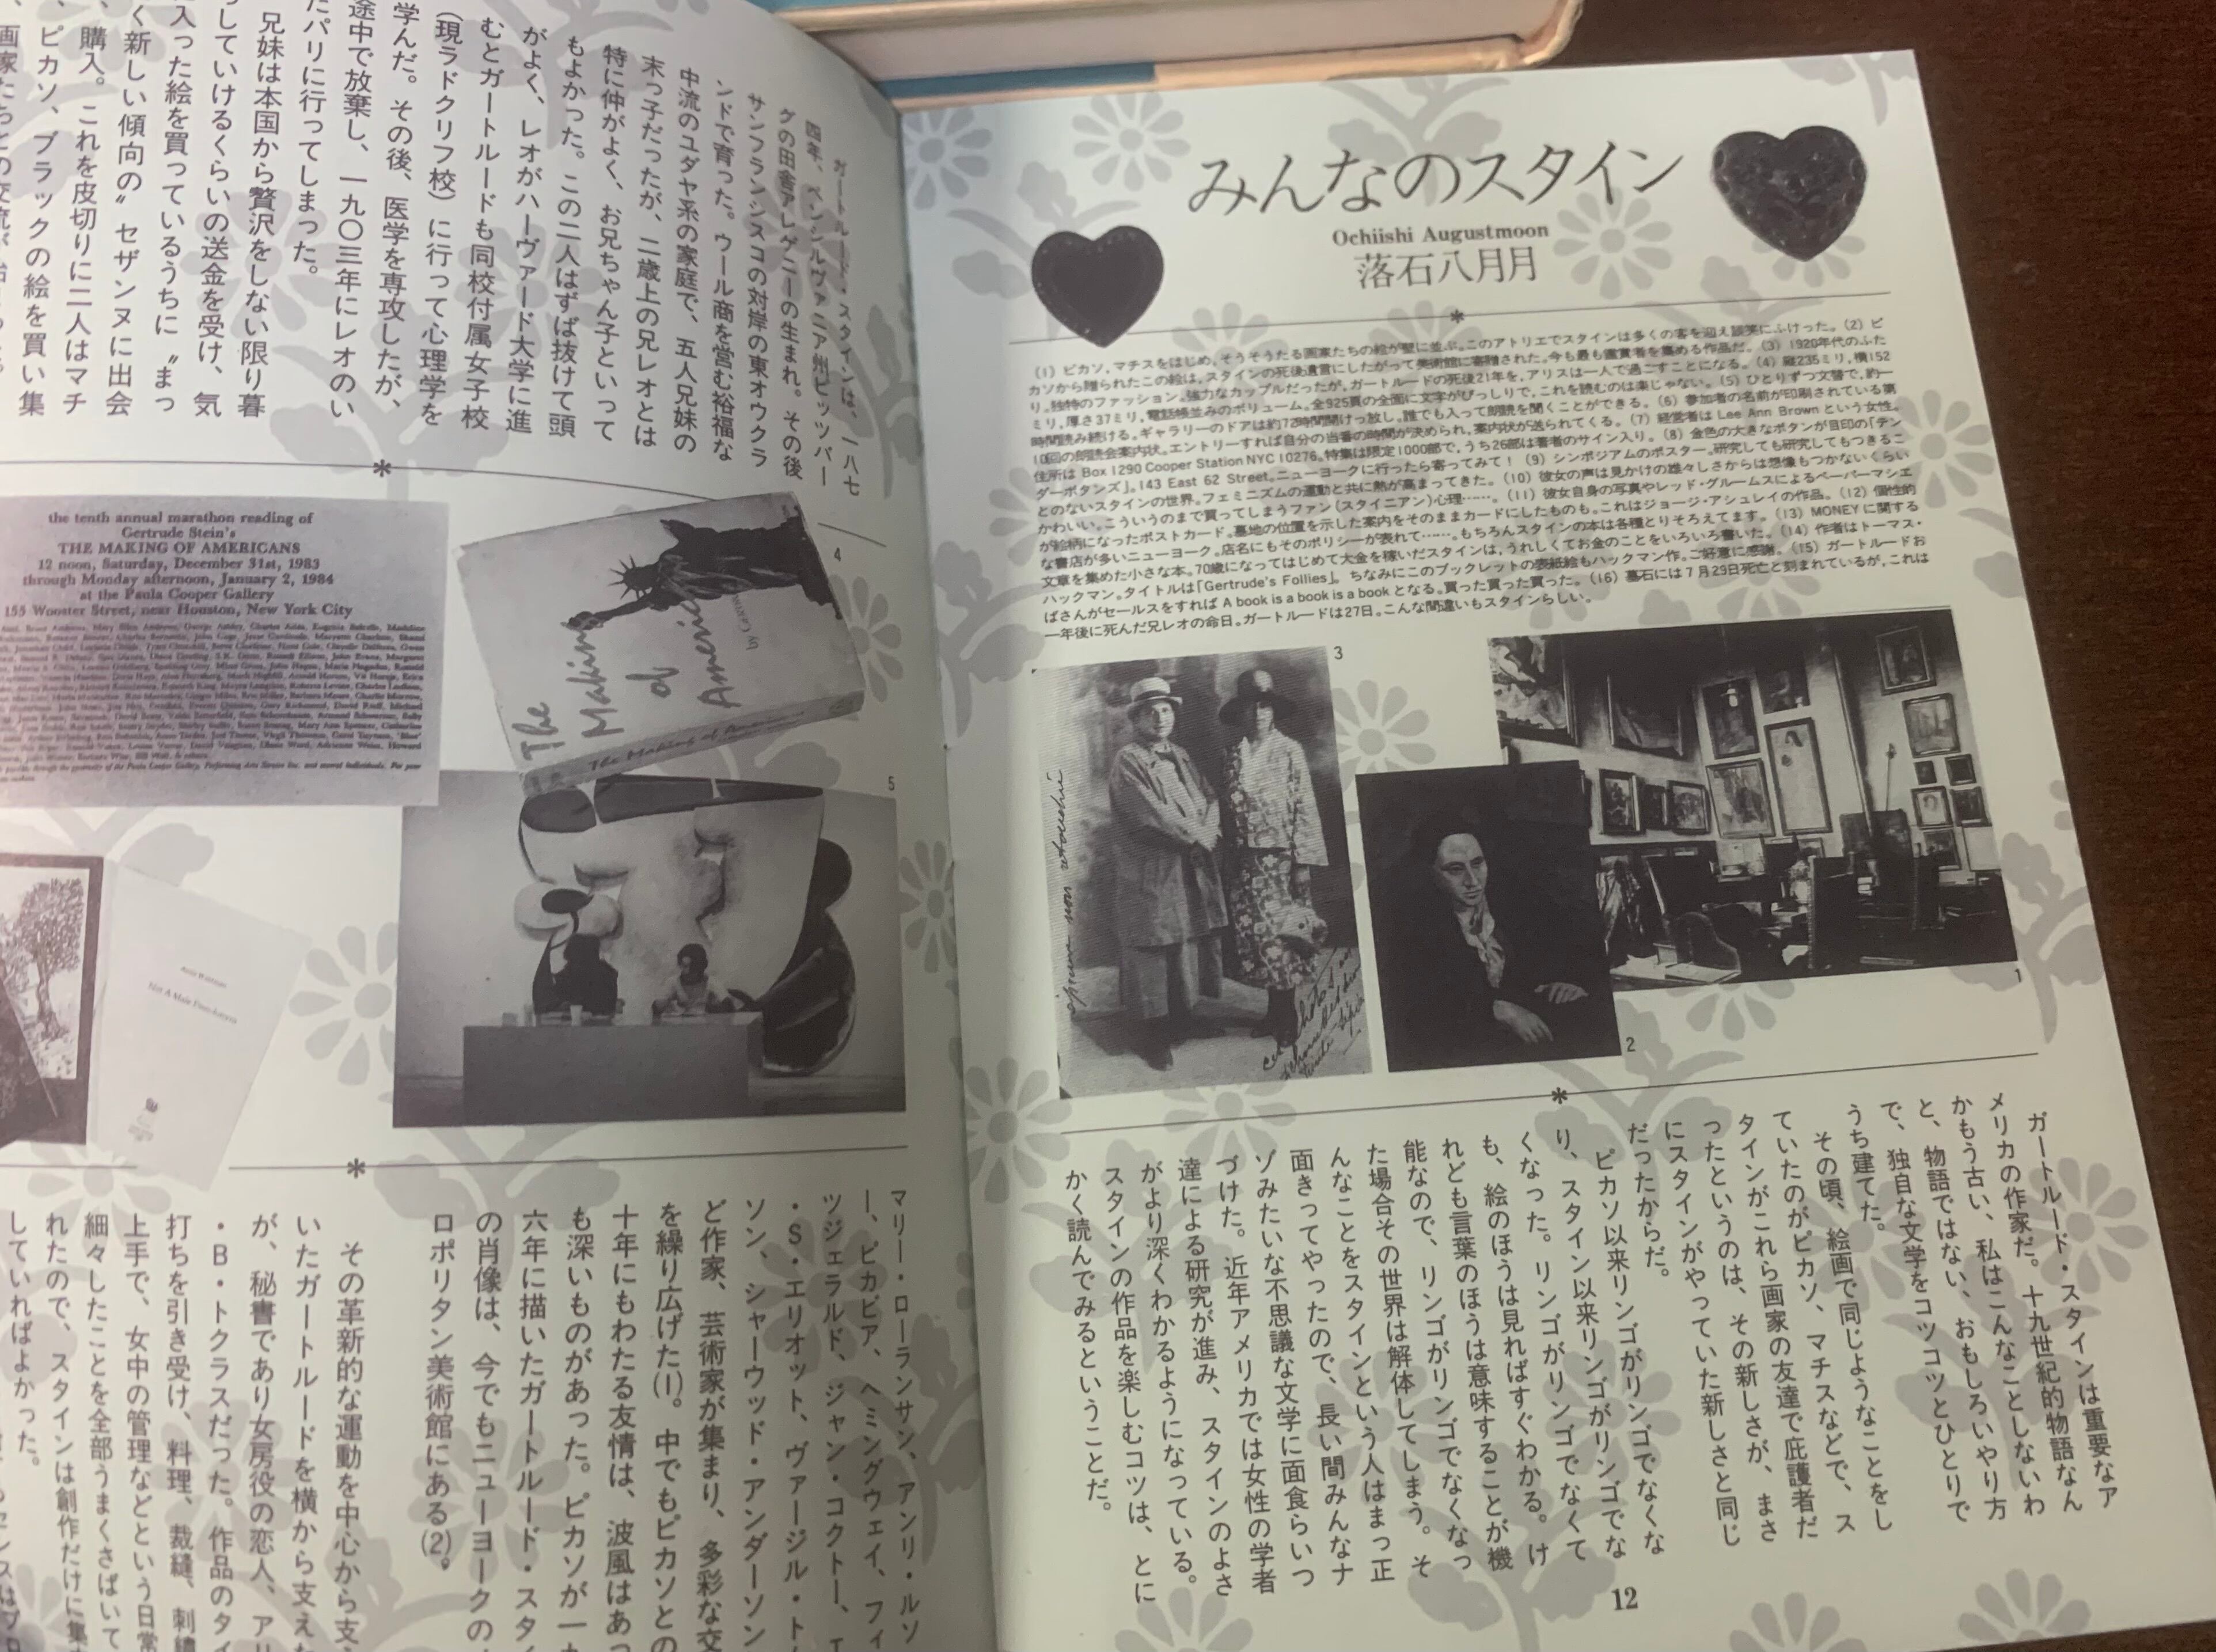 みんなのスタイン
Ochiishi Augustmoon
落石八月月
*
(1) ピカソ，マチスをはじめ，そうそうたる画家たちの絵が壁に並ぶ。このアトリエでスタインは多くの客を迎え談笑にふけった。(2) ピ
カソから贈られたこの絵は，スタインの死後遺言にしたがって美術館に寄贈された。今も最も鑑賞者を集める作品だ。(3) 1920年代のふた
り。独特のファッション。強力なカップルだったが，ガートルードの死後21年を，アリスは一人で過ごすことになる。(4) 縦235ミリ，横152
ミリ，厚さ37ミリ，電話帳並みのボリューム。全925頁の全面に文字がびっしりで，これを読むのは楽じゃない。(5) ひとりずつ交替で，約一
時間読み続ける。ギャラリーのドアは約72時間開けっ放し。誰でも入って朗読を聞くことができる。(6) 参加者の名前が印刷されている第
10回の朗読会案内状。エントリーすれば自分の当番の時間が決められ，案内状が送られてくる。(7) 経営者は Lee Ann Brown という女性。
住所は Box 1290 Cooper Station NYC 10276。特集は限定1000部で，うち26部は著者のサイン入り。(8) 金色の大きなボタンが目印の「テン
ダーボタンズ」。143 East 62 Street。ニューヨークに行ったら寄ってみて！ (9) シンポジアムのポスター。研究しても研究してもつきるこ
とのないスタインの世界。フェミニズムの運動と共に熱が高まってきた。(10) 彼女の声は見かけの雄々しさからは想像もつかないくらい
かわいい。こういうのまで買ってしまうファン（スタイニアン）心理……。(11) 彼女自身の写真やレッド・グルームスによるペーパーマシエ
が絵柄になったポストカード。墓地の位置を示した案内をそのままカードにしたものも。これはジョージ・アシュレイの作品。(12) 個性的
な書店が多いニューヨーク。店名にもそのポリシーが表れて……。もちろんスタインの本は各種とりそろえてます。(13) MONEYに関する
文章を集めた小さな本。70歳になってはじめて大金を稼いだスタインは，うれしくてお金のことをいろいろ書いた。(14) 作者はトーマス・
ハックマン。タイトルは「Gertrude's Follies」。ちなみにこのブックレットの表紙絵もハックマン作。ご好意に感謝。(15) ガートルードお
ばさんがセールスをすれば A book is a book is a book となる。買った買った買った。(16) 墓石には7月29日死亡と刻まれているが，これは
一年後に死んだ兄レオの命日。ガートルードは27日。こんな間違いもスタインらしい。
3
1
2
*
ガートルード・スタインは重要なア
メリカの作家だ。十九世紀的物語なん
かもう古い、私はこんなことしないわ
と、物語ではない、おもしろいやり方
で、独自な文学をコツコツとひとりで
うち建てた。
その頃、絵画で同じようなことをし
ていたのがピカソ、マチスなどで、ス
タインがこれら画家の友達で庇護者だ
ったというのは、その新しさが、まさ
にスタインがやっていた新しさと同じ
だったからだ。
ピカソ以来リンゴがリンゴでなくな
り、スタイン以来リンゴがリンゴでな
くなった。リンゴがリンゴでなくて
も、絵のほうは見ればすぐわかる。け
れども言葉のほうは意味することが機
能なので、リンゴがリンゴでなくなっ
た場合その世界は解体してしまう。そ
んなことをスタインという人はまっ正
面きってやったので、長い間みんなナ
ゾみたいな不思議な文学に面食らいつ
づけた。近年アメリカでは女性の学者
達による研究が進み、スタインのよさ
がより深くわかるようになっている。
スタインの作品を楽しむコツは、とに
かく読んでみるということだ。
12
ガートルード・スタインは、一八七
四年、ペンシルヴァニア州ピッツバー
グの田舎アレゲニーの生まれ。その後
サンフランシスコの対岸の東オウクラ
ンドで育った。ウール商を営む裕福な
中流のユダヤ系の家庭で、五人兄妹の
末っ子だったが、二歳上の兄レオとは
特に仲がよく、お兄ちゃん子といって
もよかった。この二人はずば抜けて頭
がよく、レオがハーヴァード大学に進
むとガートルードも同校付属女子校
（現ラドクリフ校）に行って心理学を
学んだ。その後、医学を専攻したが、
途中で放棄し、一九〇三年にレオのい
たパリに行ってしまった。
兄妹は本国から贅沢をしない限り暮
らしていけるくらいの送金を受け、気
に入った絵を買っているうちに〝まっ
く新しい傾向の〟セザンヌに出会
購入。これを皮切りに二人はマチ
、ピカソ、ブラックの絵を買い集
*
the tenth annual marathon reading of
Gertrude Stein's
THE MAKING OF AMERICANS
12 noon, Saturday, December 31st, 1983
through Monday afternoon, January 2, 1984
at the Paula Cooper Gallery
155 Wooster Street, near Houston, New York City
4
The
Making
of
America
The Making of Americans
5
*
マリー・ローランサン、アンリ・ルソ
ー、ピカビア、ヘミングウェイ、フィ
ツジェラルド、ジャン・コクトー、
・S・エリオット、ヴァージル・ト
ソン、シャーウッド・アンダーソン
ど作家、芸術家が集まり、多彩な交
を繰り広げた(1)。中でもピカソとの
十年にもわたる友情は、波風はあっ
も深いものがあった。ピカソが一九
六年に描いたガートルード・スタイ
の肖像は、今でもニューヨークの
ロポリタン美術館にある(2)。
その革新的な運動を中心から支え
いたガートルードを横から支えた
が、秘書であり女房役の恋人、アリ
・B・トクラスだった。作品のタイ
打ちを引き受け、料理、裁縫、刺繍
上手で、女中の管理などという日常
細々したことを全部うまくさばいて
れたので、スタインは創作だけに集
していればよかった。